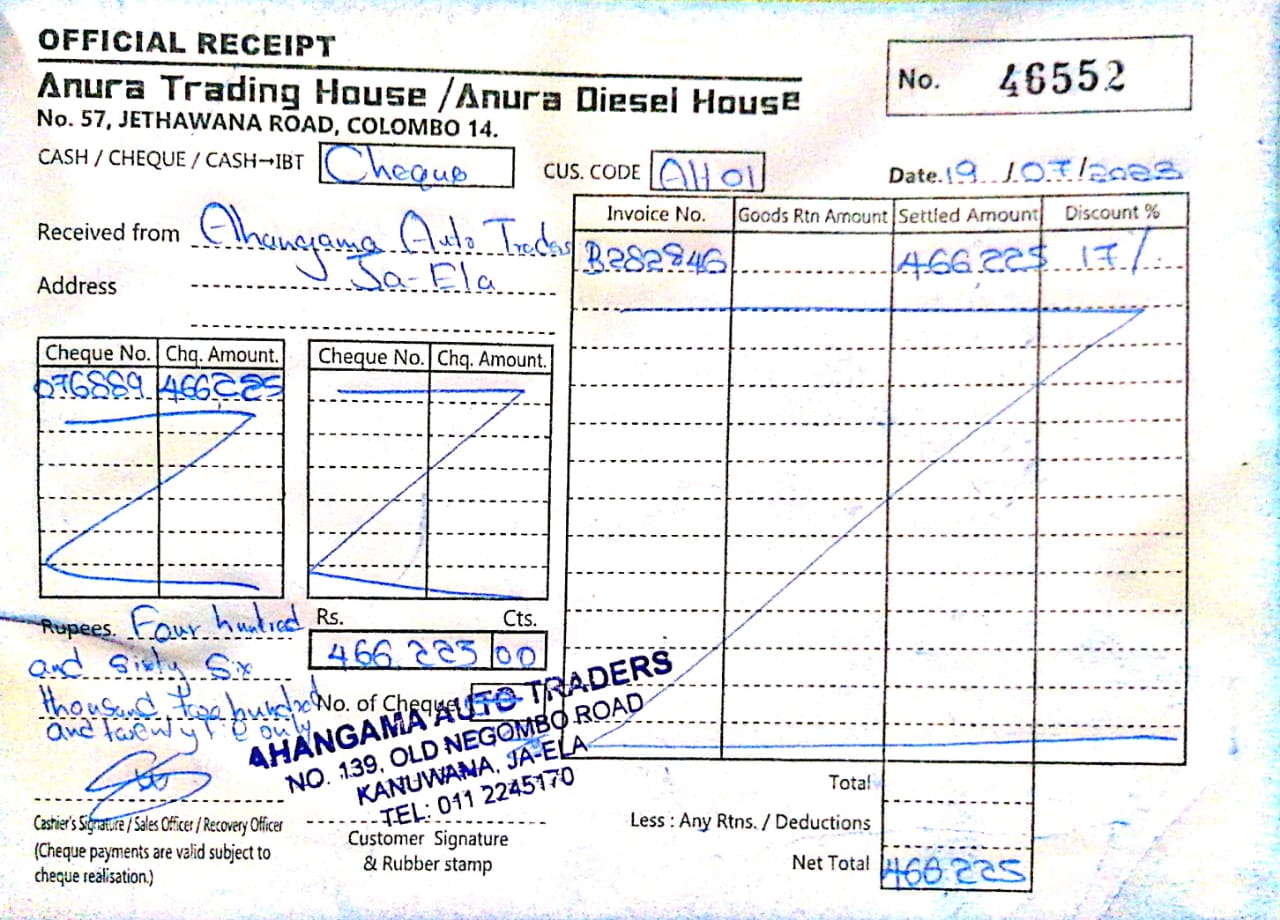 OFFICIAL RECEIPT
Anura Trading House / Anura Diesel House
No. 57, JETHAWANA ROAD, COLOMBO 14.
No. 46552
CASH / CHEQUE / CASH→IBT Cheque
CUS. CODE AH 01
Date. 19 / 07 / 2023
Received from Ahangama Auto Traders
Address Ja-Ela
Invoice No. Goods Rtn Amount Settled Amount Discount %
B282846 466 225 17 /
Cheque No. Chq. Amount.
076889 466225
Cheque No. Chq. Amount.
Rupees. Four hundred
and Sixty Six
thousand two hundred
and twenty only
Rs. Cts.
466 225 00
No. of Cheque
AHANGAMA AUTO TRADERS
NO. 139, OLD NEGOMBO ROAD
KANUWANA, JA-ELA
TEL: 011 2245170
Cashier's Signature / Sales Officer / Recovery Officer
(Cheque payments are valid subject to
cheque realisation.)
Customer Signature
& Rubber stamp
Total
Less : Any Rtns. / Deductions
Net Total 466 225